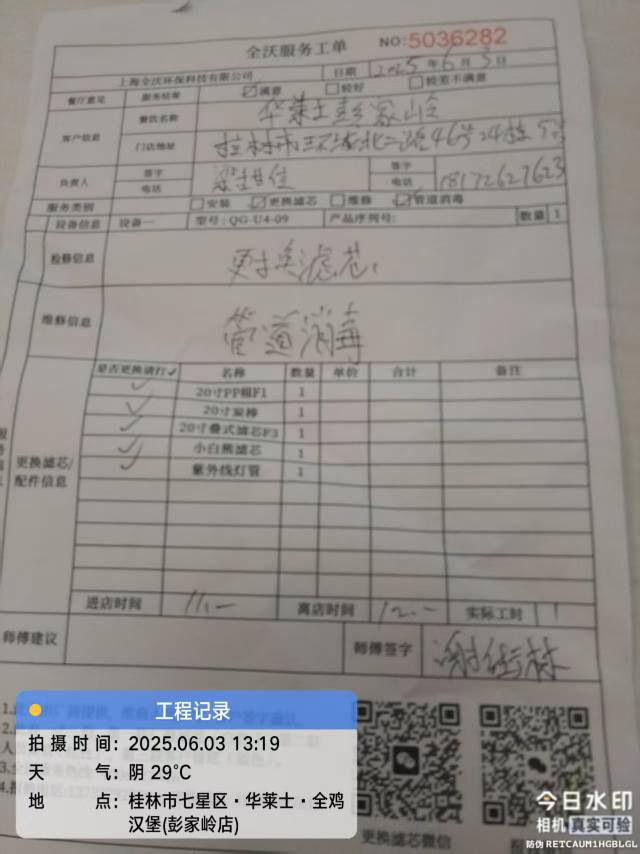 全沃服务工单 NO:5036282
上海全沃环保科技有限公司 日期 2025年6月3日
餐厅意见 服务结果 ☑满意 □较好 □较差不满意
客户信息 餐饮名称 华莱士彭家岭店
门店地址 桂林市 46号24栋5号
负责人 签字 签字
电话 电话 18172627623
服务类别 □安装 ☑更换滤芯 □维修 ☑管道消毒
设备信息 设备一 型号:QG-U4-09 产品序列号: 数量 1
检修信息 更换滤芯
维修信息 管道消毒
更换滤芯/配件信息
是否更换请打✓ 名称 数量 单价 合计 备注
✓ 20寸PP棉F1 1
✓ 20寸炭棒 1
✓ 20寸叠式滤芯F3 1
✓ 小白熊滤芯 1
✓ 紫外线灯管 1
进店时间 11.— 离店时间 12.— 实际工时 1
师傅建议 师傅签字
工程记录
拍摄时间: 2025.06.03 13:19
天气: 阴 29°C
地点: 桂林市七星区·华莱士·全鸡
汉堡(彭家岭店)
更换滤芯微信
今日水印
相机 真实可验
防伪 RETCAUM1HGBLGL